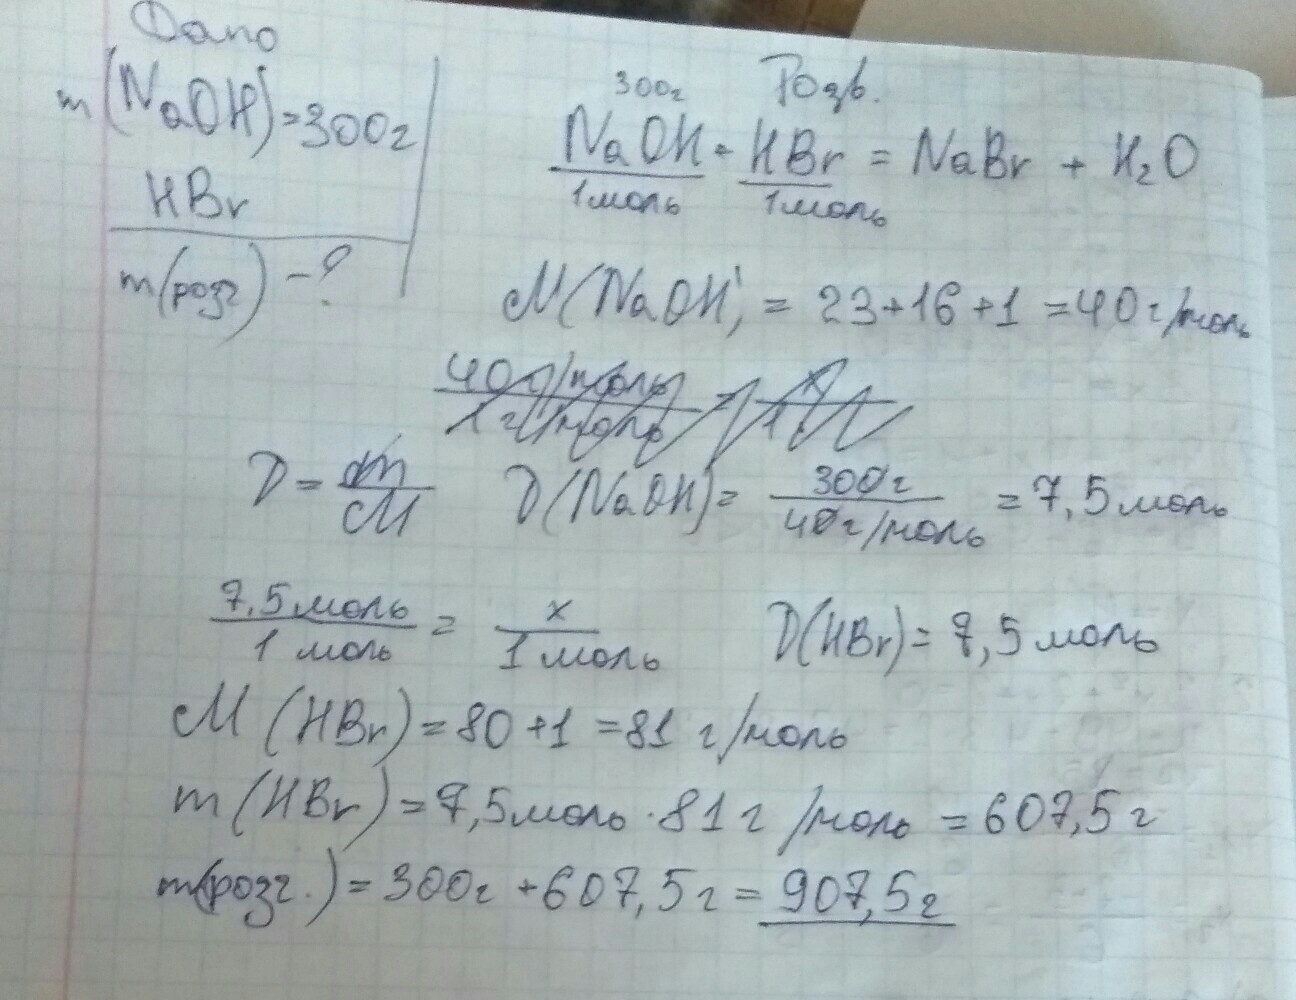 Дано
m(NaOH)=300г
HBr
m(розг)-?
Розв.
300г
NaOH + HBr = NaBr + H₂O
1моль 1моль
M(NaOH) = 23+16+1 =40г/моль
D = m/M D(NaOH)= 300г/40г/моль = 7,5моль
7,5моль/1 моль = x/1моль D(HBr)= 7,5моль
M (HBr)=80+1 =81 г/моль
m(HBr)=7,5моль·81г/моль = 607,5г
m(розг.)= 300г +607,5г= 907,5г